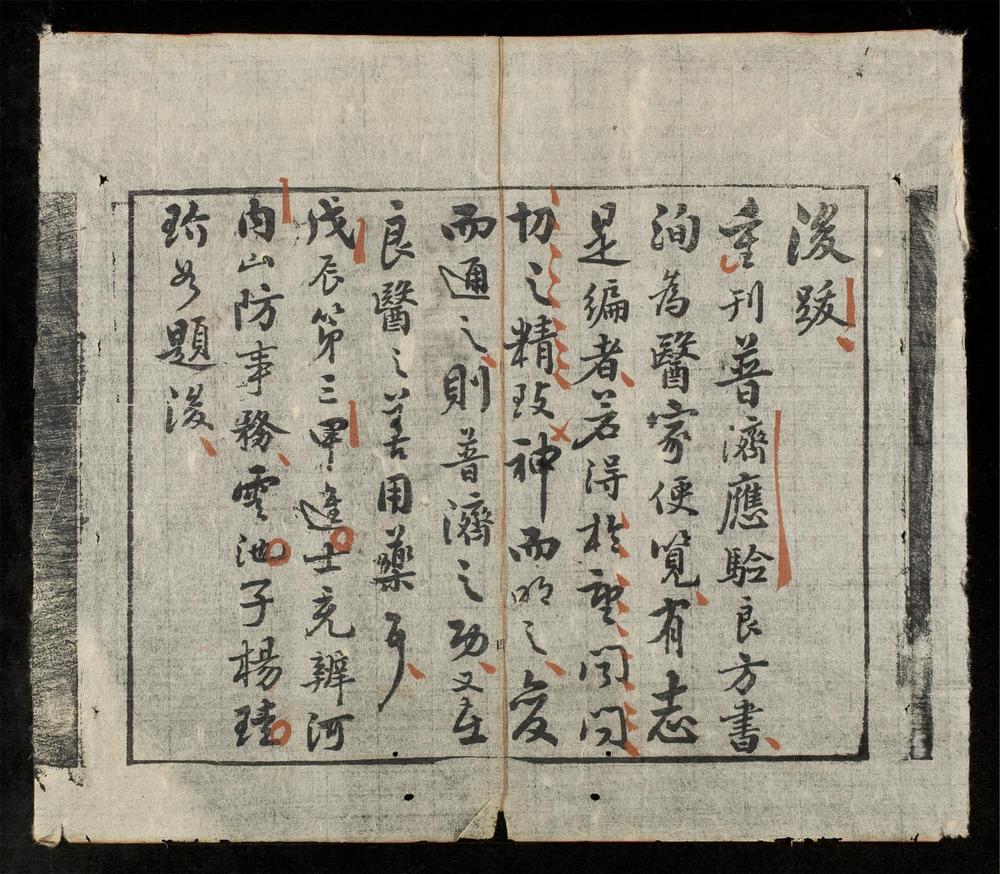 後跋
重刊普濟應驗良方書
洵為醫家便覽有志
是編者若得於望聞問
切之精致神而明之變
而通之則普濟之功又在
良醫之善用藥耳
戊辰第三甲進士充辦河
內山防事務雲池子楊
珍甫題後